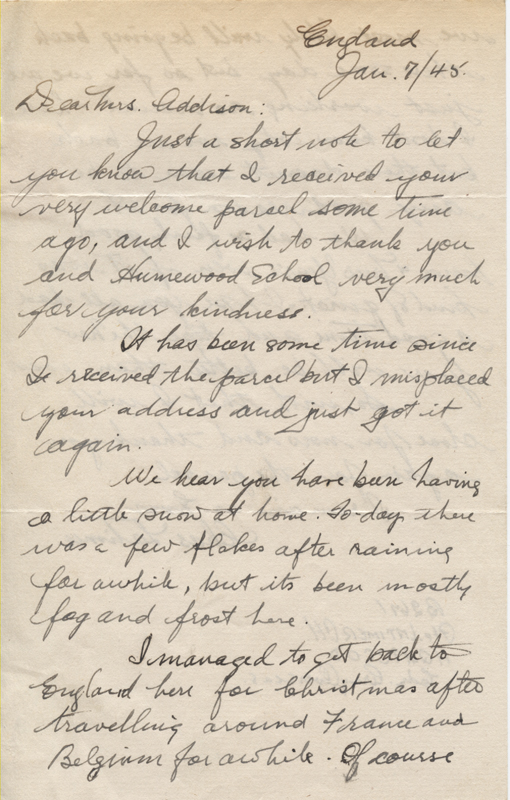 England
Jan. 7/45.
Dear Mrs. Addison:
Just a short note to let
you know that I received your
very welcome parcel some time
ago, and I wish to thank you
and Humewood School very much
for your kindness.
It has been some time since
I received the parcel but I misplaced
your address and just got it
again.
We hear you have been having
a little snow at home. To-day there
was a few flakes after raining
for awhile, but its been mostly
fog and frost here.
I managed to get back to
England here for Christmas after
travelling around France and
Belgium for awhile. Of course